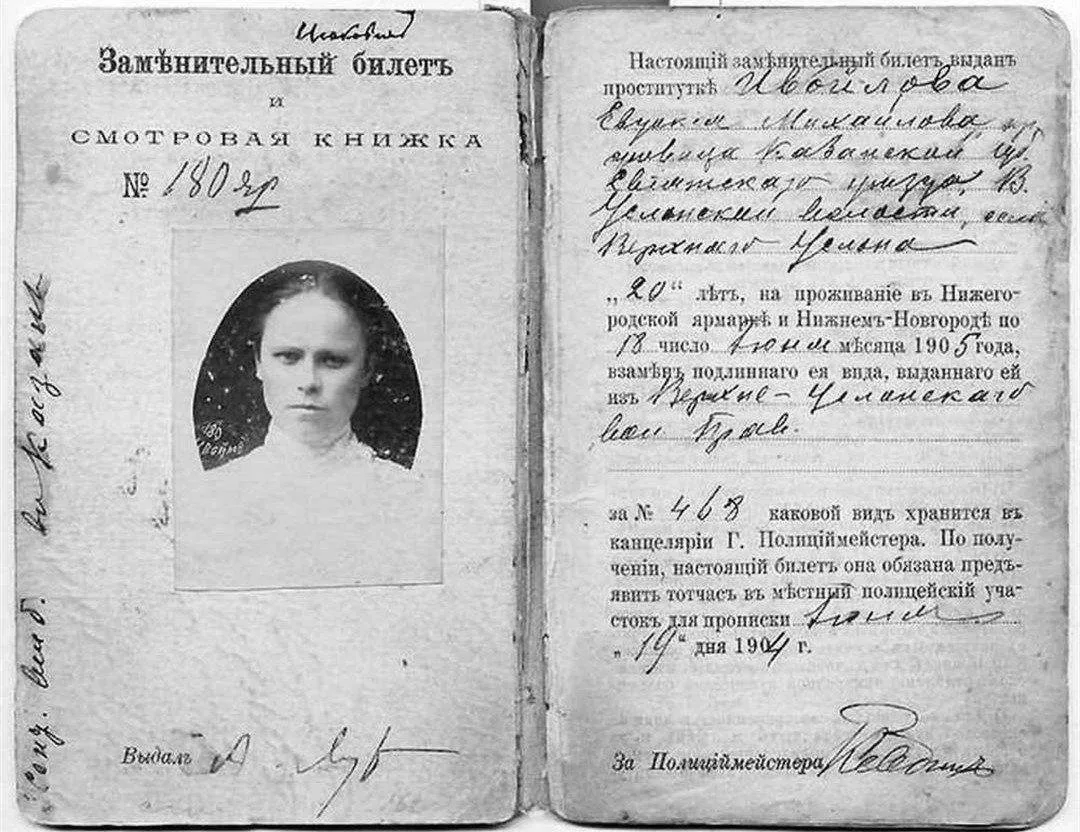 Замѣнительный билетъ
и
СМОТРОВАЯ КНИЖКА
№ 180 яр
въ Казань
Выдалъ
Настоящій замѣнительный билетъ выданъ
проституткѣ Ивойлова
Михайлова
Казанской губ.
уѣзда, В.
Услонской волости, села
Верхняго Услона
„20“ лѣтъ, на проживаніе въ Нижего-
родской ярмаркѣ и Нижнемъ-Новгородѣ по
18 число Іюня мѣсяца 1905 года,
взамѣнъ подлиннаго ея вида, выданнаго ей
изъ Верхне-Услонскаго
вол Прав.
за № 468 каковой видъ хранится въ
канцеляріи Г. Полиціймейстера. По полу-
ченіи, настоящій билетъ она обязана предъ-
явить тотчасъ въ мѣстный полицейскій уча-
стокъ для прописки Іюня
„19“ дня 1904 г.
За Полиціймейстера